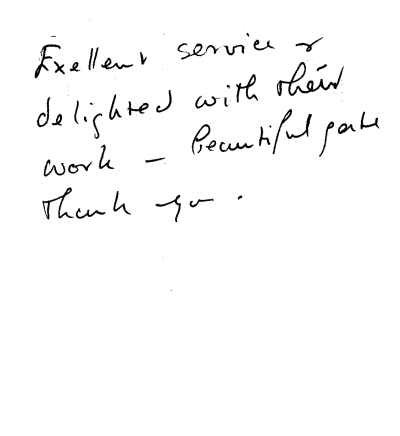 Exellent service &
delighted with their
work - beautiful gate
Thank you.